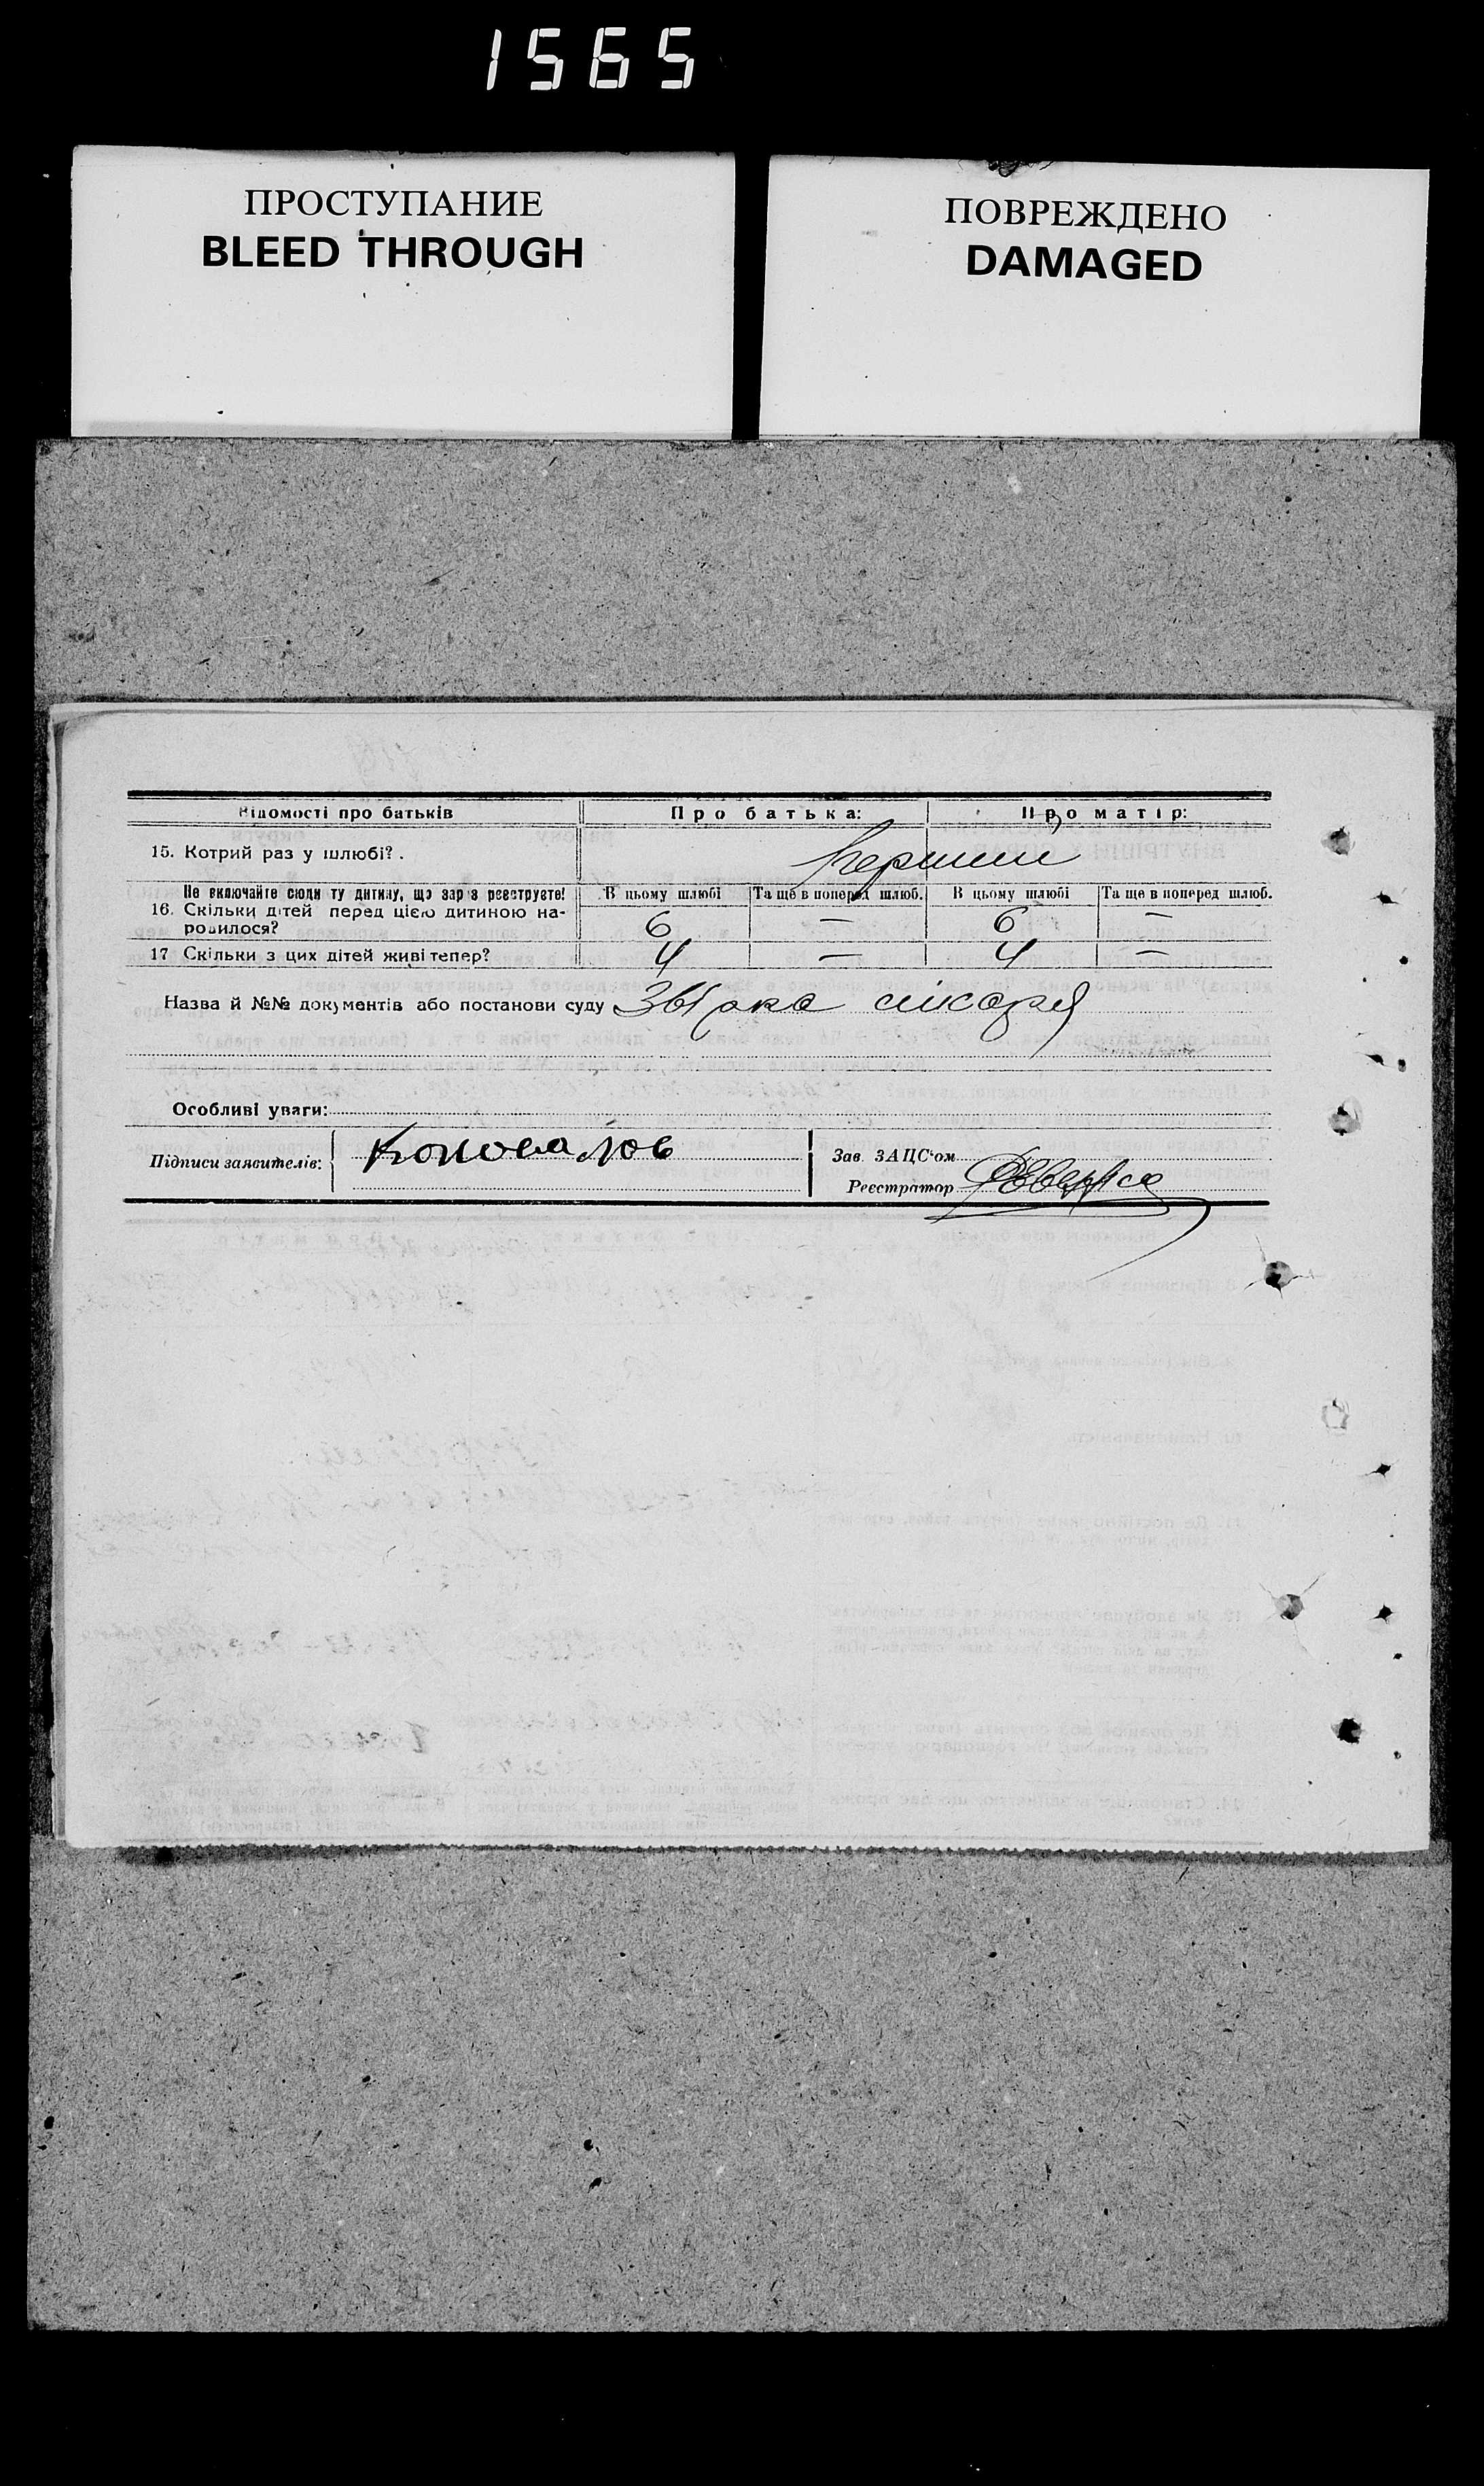 1565
ПРОСТУПАНИЕ
BLEED THROUGH
ПОВРЕЖДЕНО
DAMAGED
Відомості про батьків
Про батька:
Про матір:
15. Котрий раз у шлюбі?.
перший
Не включайте сюди ту дитину, що зараз реєструєте!
В цьому шлюбі
Та ще в поперед шлюб.
В цьому шлюбі
Та ще в поперед шлюб.
16. Скільки дітей перед цією дитиною на-
родилося?
6
—
6
—
17 Скільки з цих дітей живі тепер?
4
—
4
—
Назва й №№ документів або постанови суду
лікаря
Особливі уваги:
Підписи заявителів:
Коновалов
Зав. ЗАЦС'ом
Реєстратор